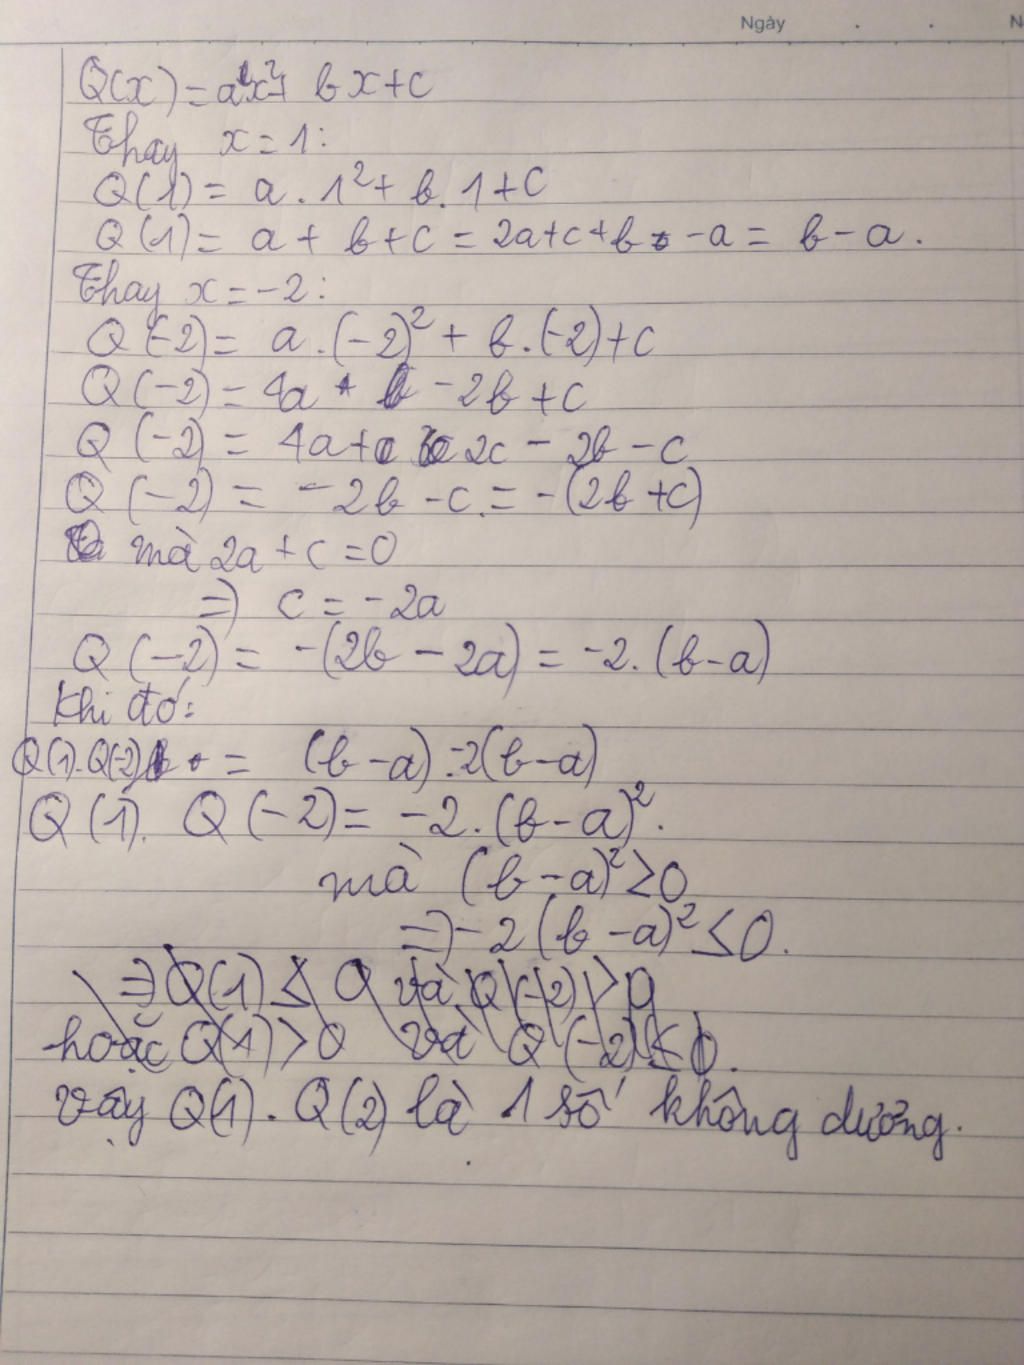 Ngày
Q(x) = ax²+ bx+c
Thay x = 1:
Q(1) = a . 1² + b. 1 + c
Q(1) = a + b + c = 2a+c+b -a = b - a .
Thay x = -2:
Q (-2) = a . (-2)² + b . (-2) + c
Q (-2) = 4a - 2b + c
Q (-2) = 4a + 2c - 2b - c
Q (-2) = - 2b - c = - (2b +c)
mà 2a + c = 0
=> c = - 2a
Q (-2) = -(2b - 2a) = -2. (b-a)
Khi đó:
Q(1).Q(-2) = (b-a) .-2(b-a)
Q (1). Q (-2) = -2 . (b-a)².
mà (b-a)² ≥ 0
=> - 2 (b-a)² ≤ 0.
=> Q(1) ≤ 0 và Q(-2) > 0
hoặc Q(1) > 0 và Q (-2) ≤ 0.
Vậy Q(1) . Q(2) là 1 số không dương.